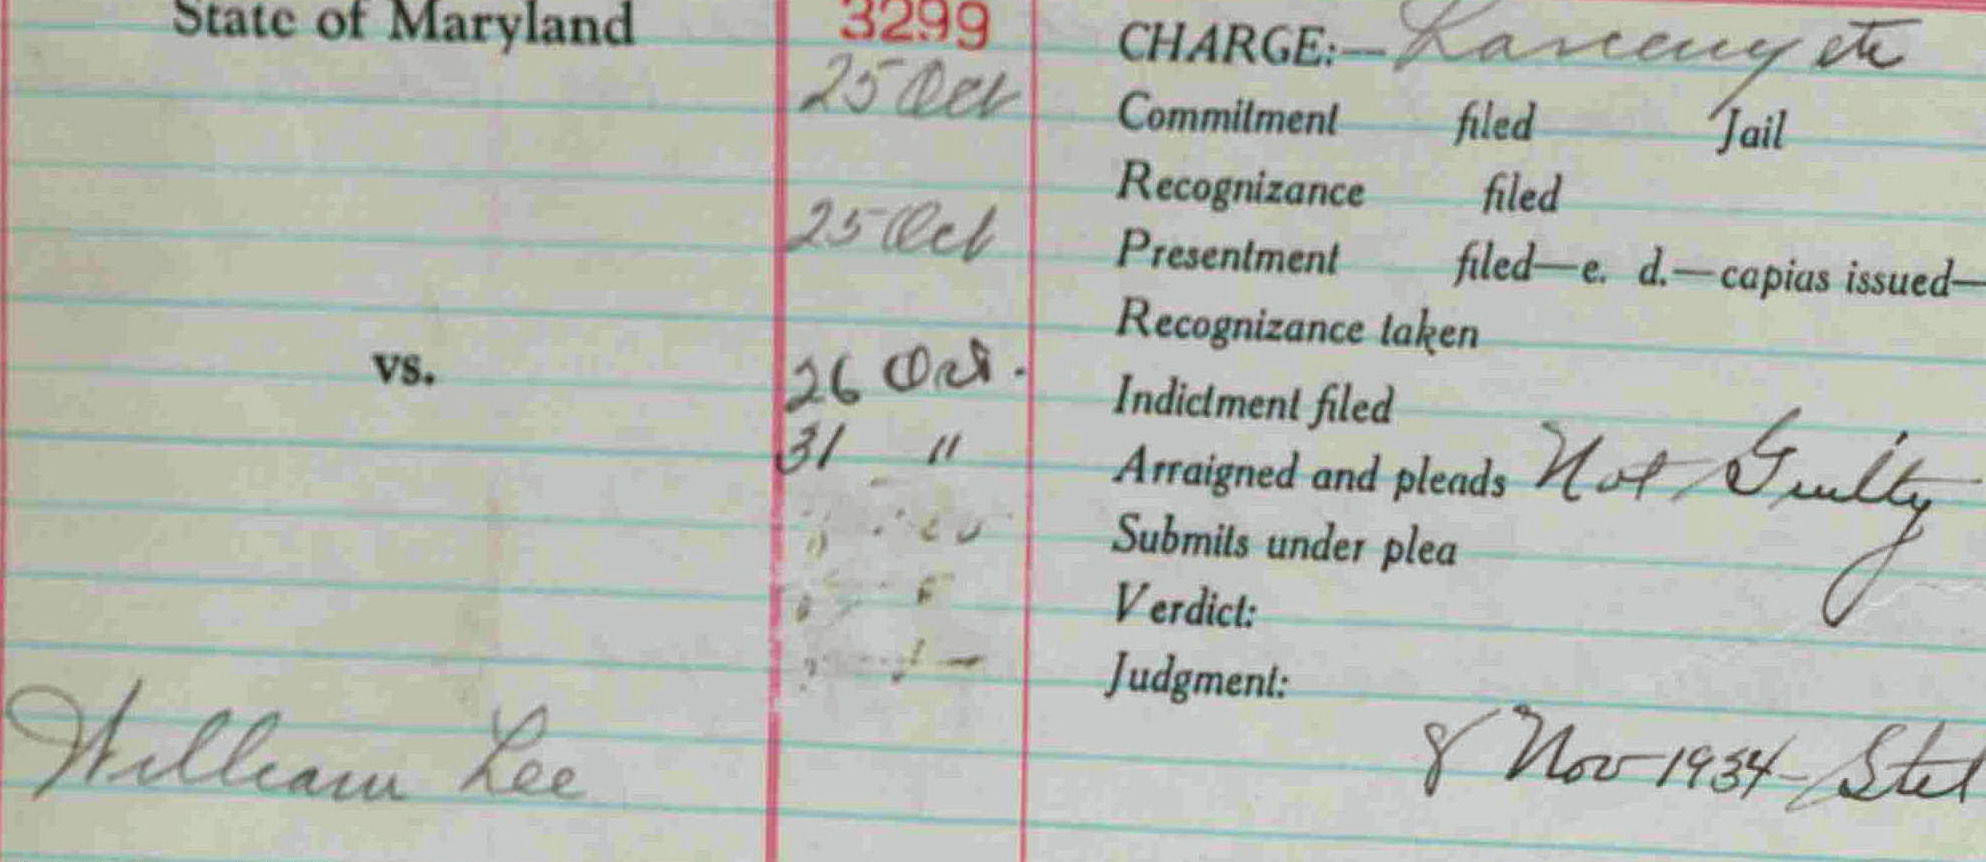 State of Maryland 3299 CHARGE:—Larceny etc
25 Oct Commitment filed Jail
Recognizance filed
25 Oct Presentment filed—e. d.—capias issued—
Recognizance taken
vs. 26 Oct. Indictment filed
31 " Arraigned and pleads Not Guilty
Submits under plea
Verdict:
Judgment:
William Lee 8 Nov 1934— Stet